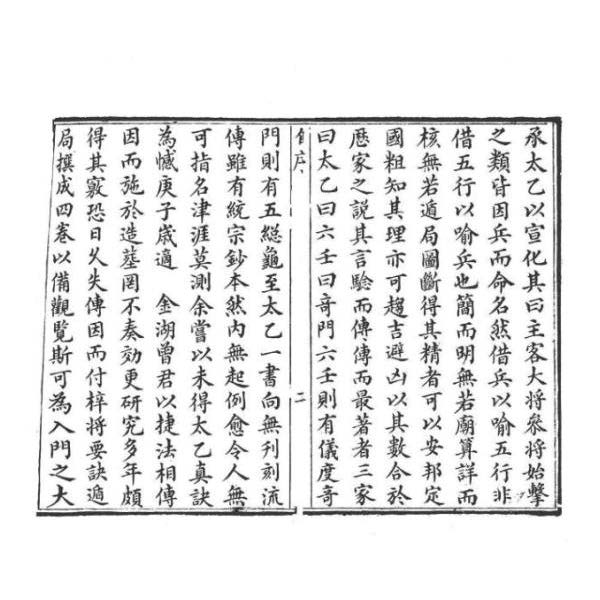 承太乙以宣化其曰主客大將叅將始擊
之類皆因兵而命名然借兵以喻五行非
借五行以喻兵也簡而明無若廟算詳而
核無若遁局圖斷得其精者可以安邦定
國粗知其理亦可趨吉避凶以其數合於
歷家之説其言驗而傳傳而最著者三家
曰太乙曰六壬曰奇門六壬則有儀度奇
自序
二
門則有五總龜至太乙一書向無刊刻流
傳雖有統宗鈔本然内無起例愈令人無
可指名津涯莫測余嘗以未得太乙真訣
為憾庚子歲適 金湖曾君以捷法相傳
因而施於造塟罔不奏效更研究多年頗
得其竅恐日久失傳因而付梓將要訣遁
局撰成四卷以備觀覽斯可為入門之大